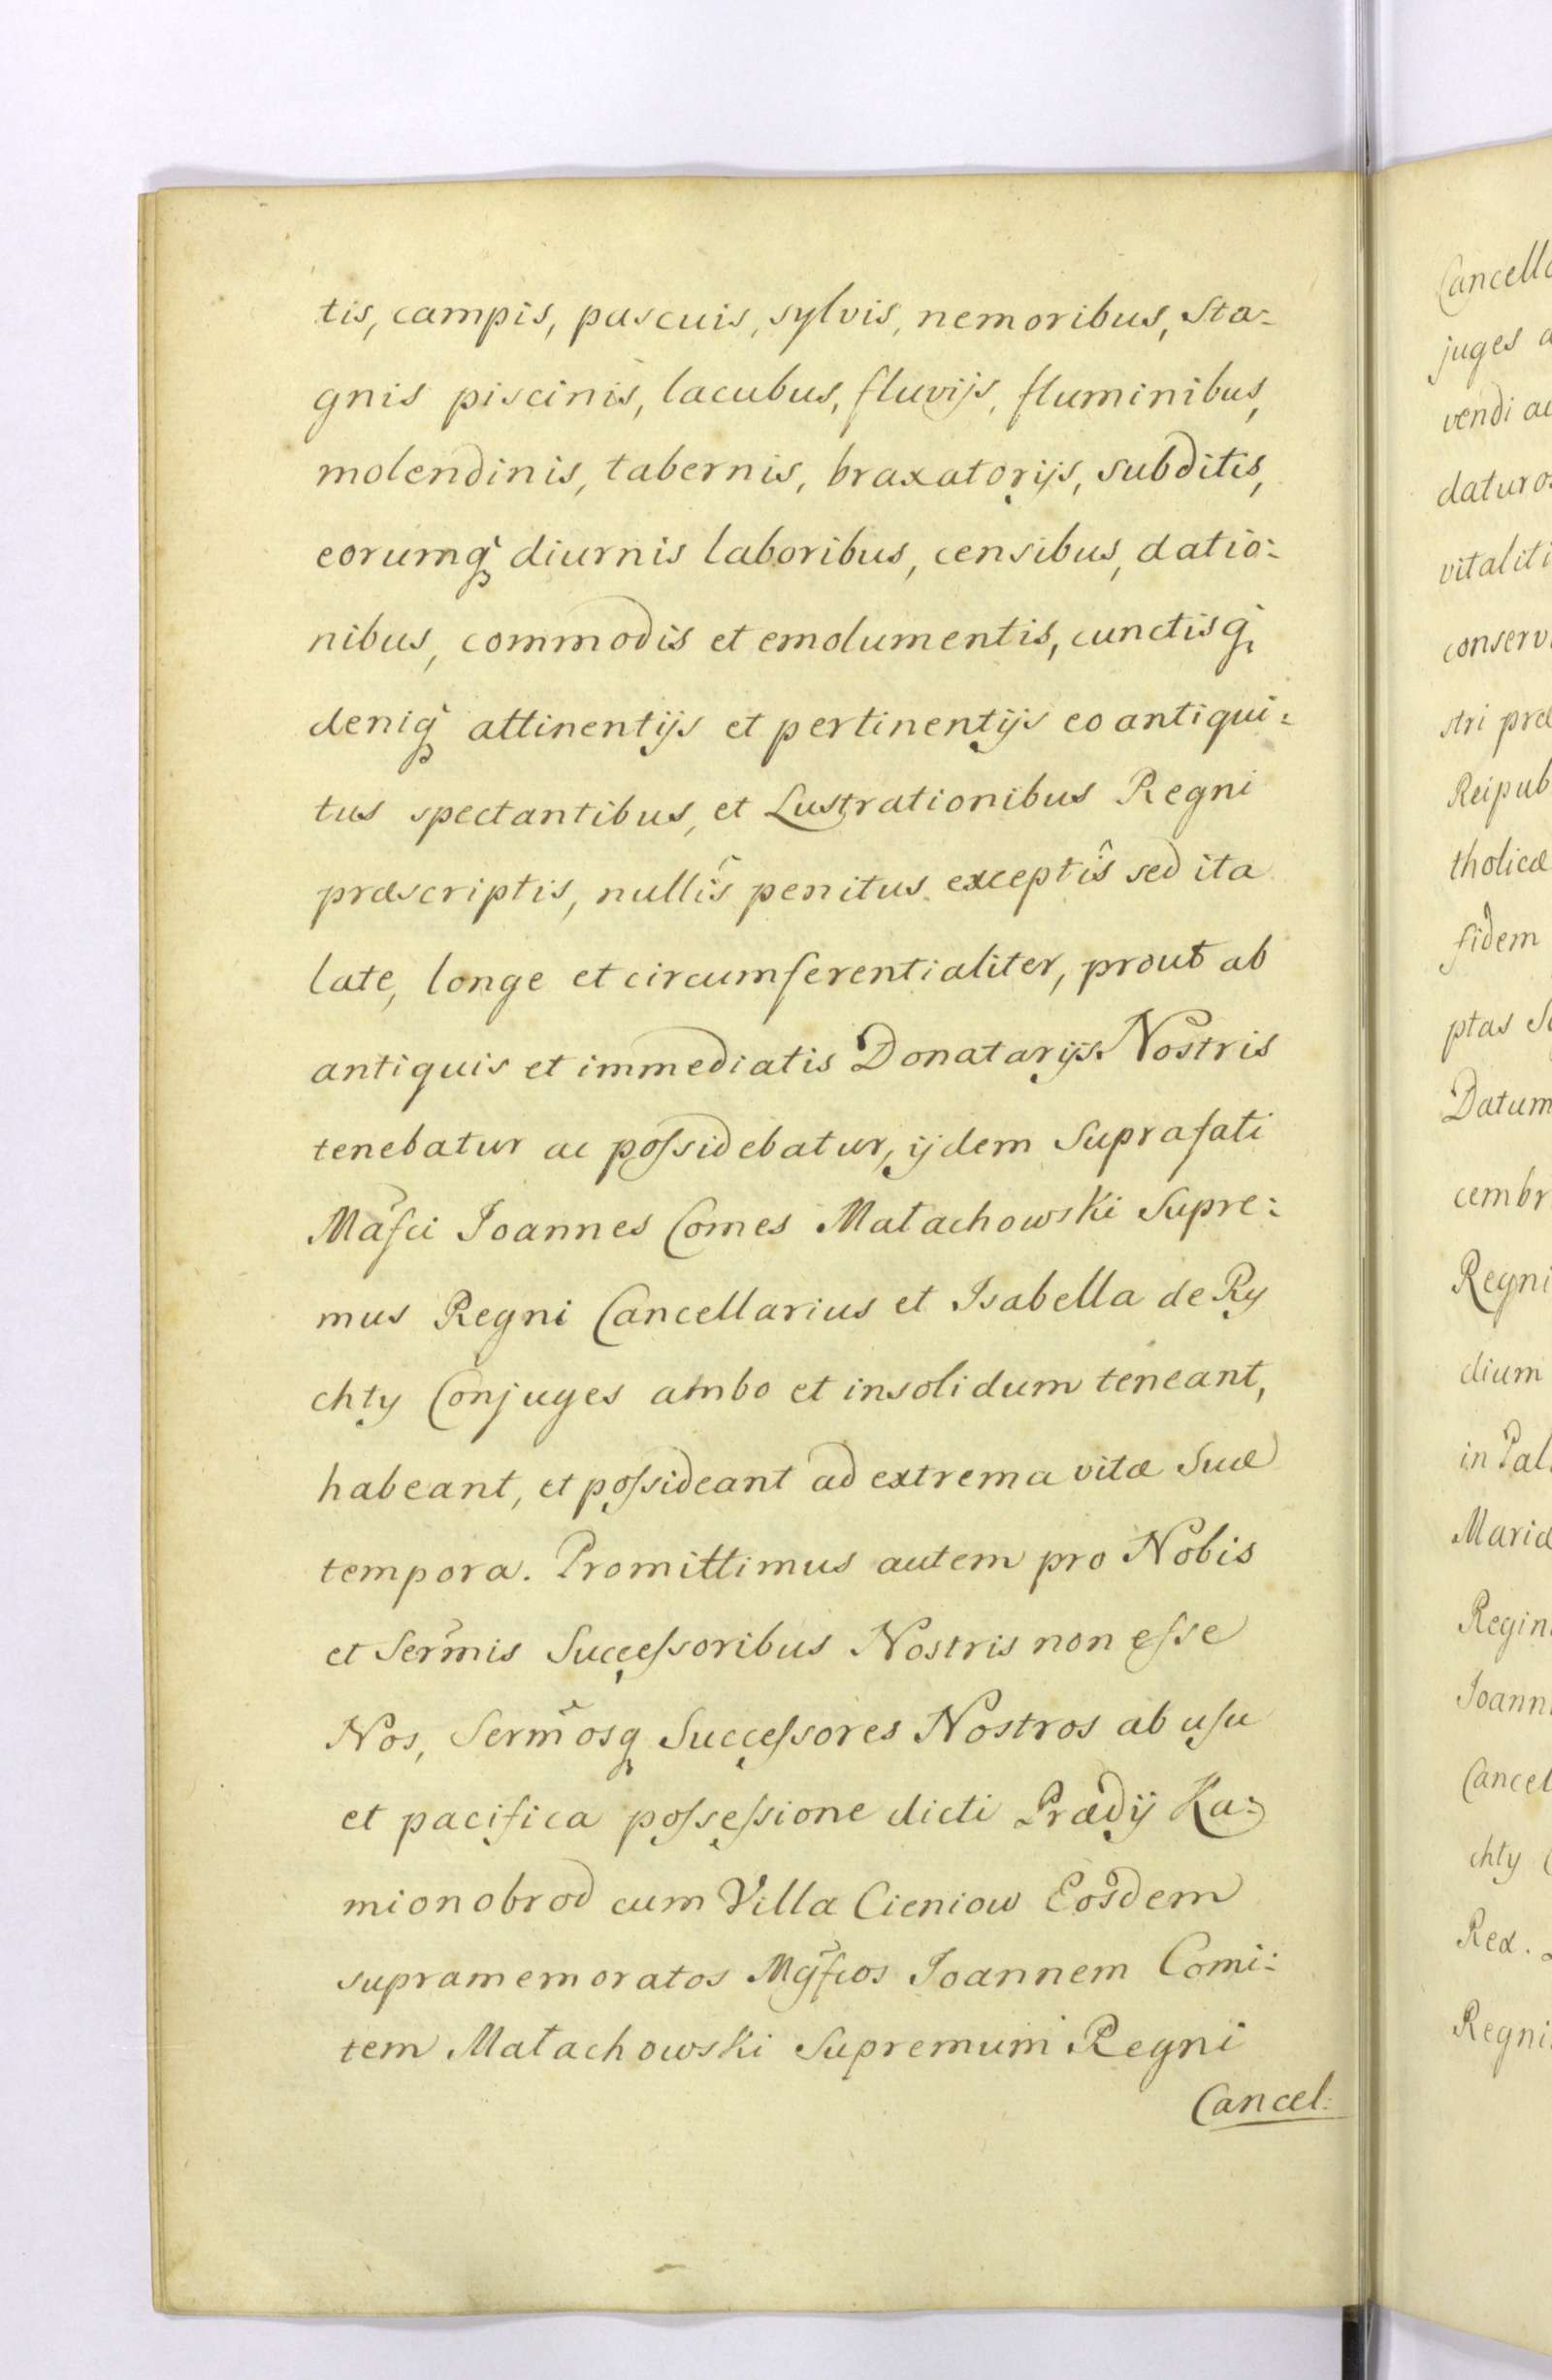 tis, campis, pascuis, sylvis, nemoribus, Sta:
gnis piscinis, lacubus, fluvijs, fluminibus,
molendinis, tabernis, braxatorijs, subditis,
eorumq̃ diurnis laboribus, censibus, datio:
nibus, commodis et emolumentis, cunctisq̃
deniq̃ attinentijs et pertinentijs eo antiqui:
tus spectantibus, et Lustrationibus Regni
præscriptis, nullîs penitus exceptîs sed ita
late, longe et circumferentialiter, prout ab
antiquis et immediatis Donatarijs Nostris
tenebatur ac poſsidebatur, ijdem Suprafati
Mãfci Joannes Comes Małachowski Supre:
mus Regni Cancellarius et Isabella de Ry
chty Conjuges ambo et insolidum teneant,
habeant, et poſsideant ad extrema vitæ Suæ
tempora. Promittimus autem pro Nobis
et Serm̃is Succeſsoribus Nostris non eſse
Nos, Serm̃osq Succeſsores Nostros ab uſu
et pacifica poſseſsione dicti Prædij Ka:
mionobrod cum Villa Cieniow Eosdem
supramemoratos Mg̃fcos Joannem Comi:
tem Małachowski Supremum Regni
Cancel:
Cancella
juges a
vendi au
daturos
vitaliti
conserv
stri præ
Reipub
tholicæ
fidem
ptas S
Datum
cembr
Regni
dium
in Pal
Mariæ
Regin
Joann
Cancel
chty C
Rex.
Regni